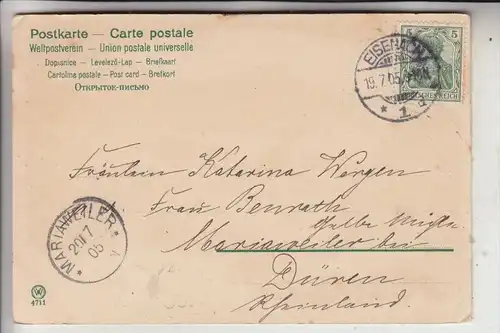 Postkarte — Carte postale
Weltpostverein — Union postale universelle
Dopisnice — Levelező-Lap — Briefkaart
Cartolina postale — Post card — Brefkort
Открытое-письмо
5 5
EISENACH
19.7.05
* 1 d
DEUTSCHES REICH
Fräulein Katarina Wergen
Frau Benrath
Mariaweiler bei
Düren
Rheinland.
MARIAWEILER
20/7
05
4711